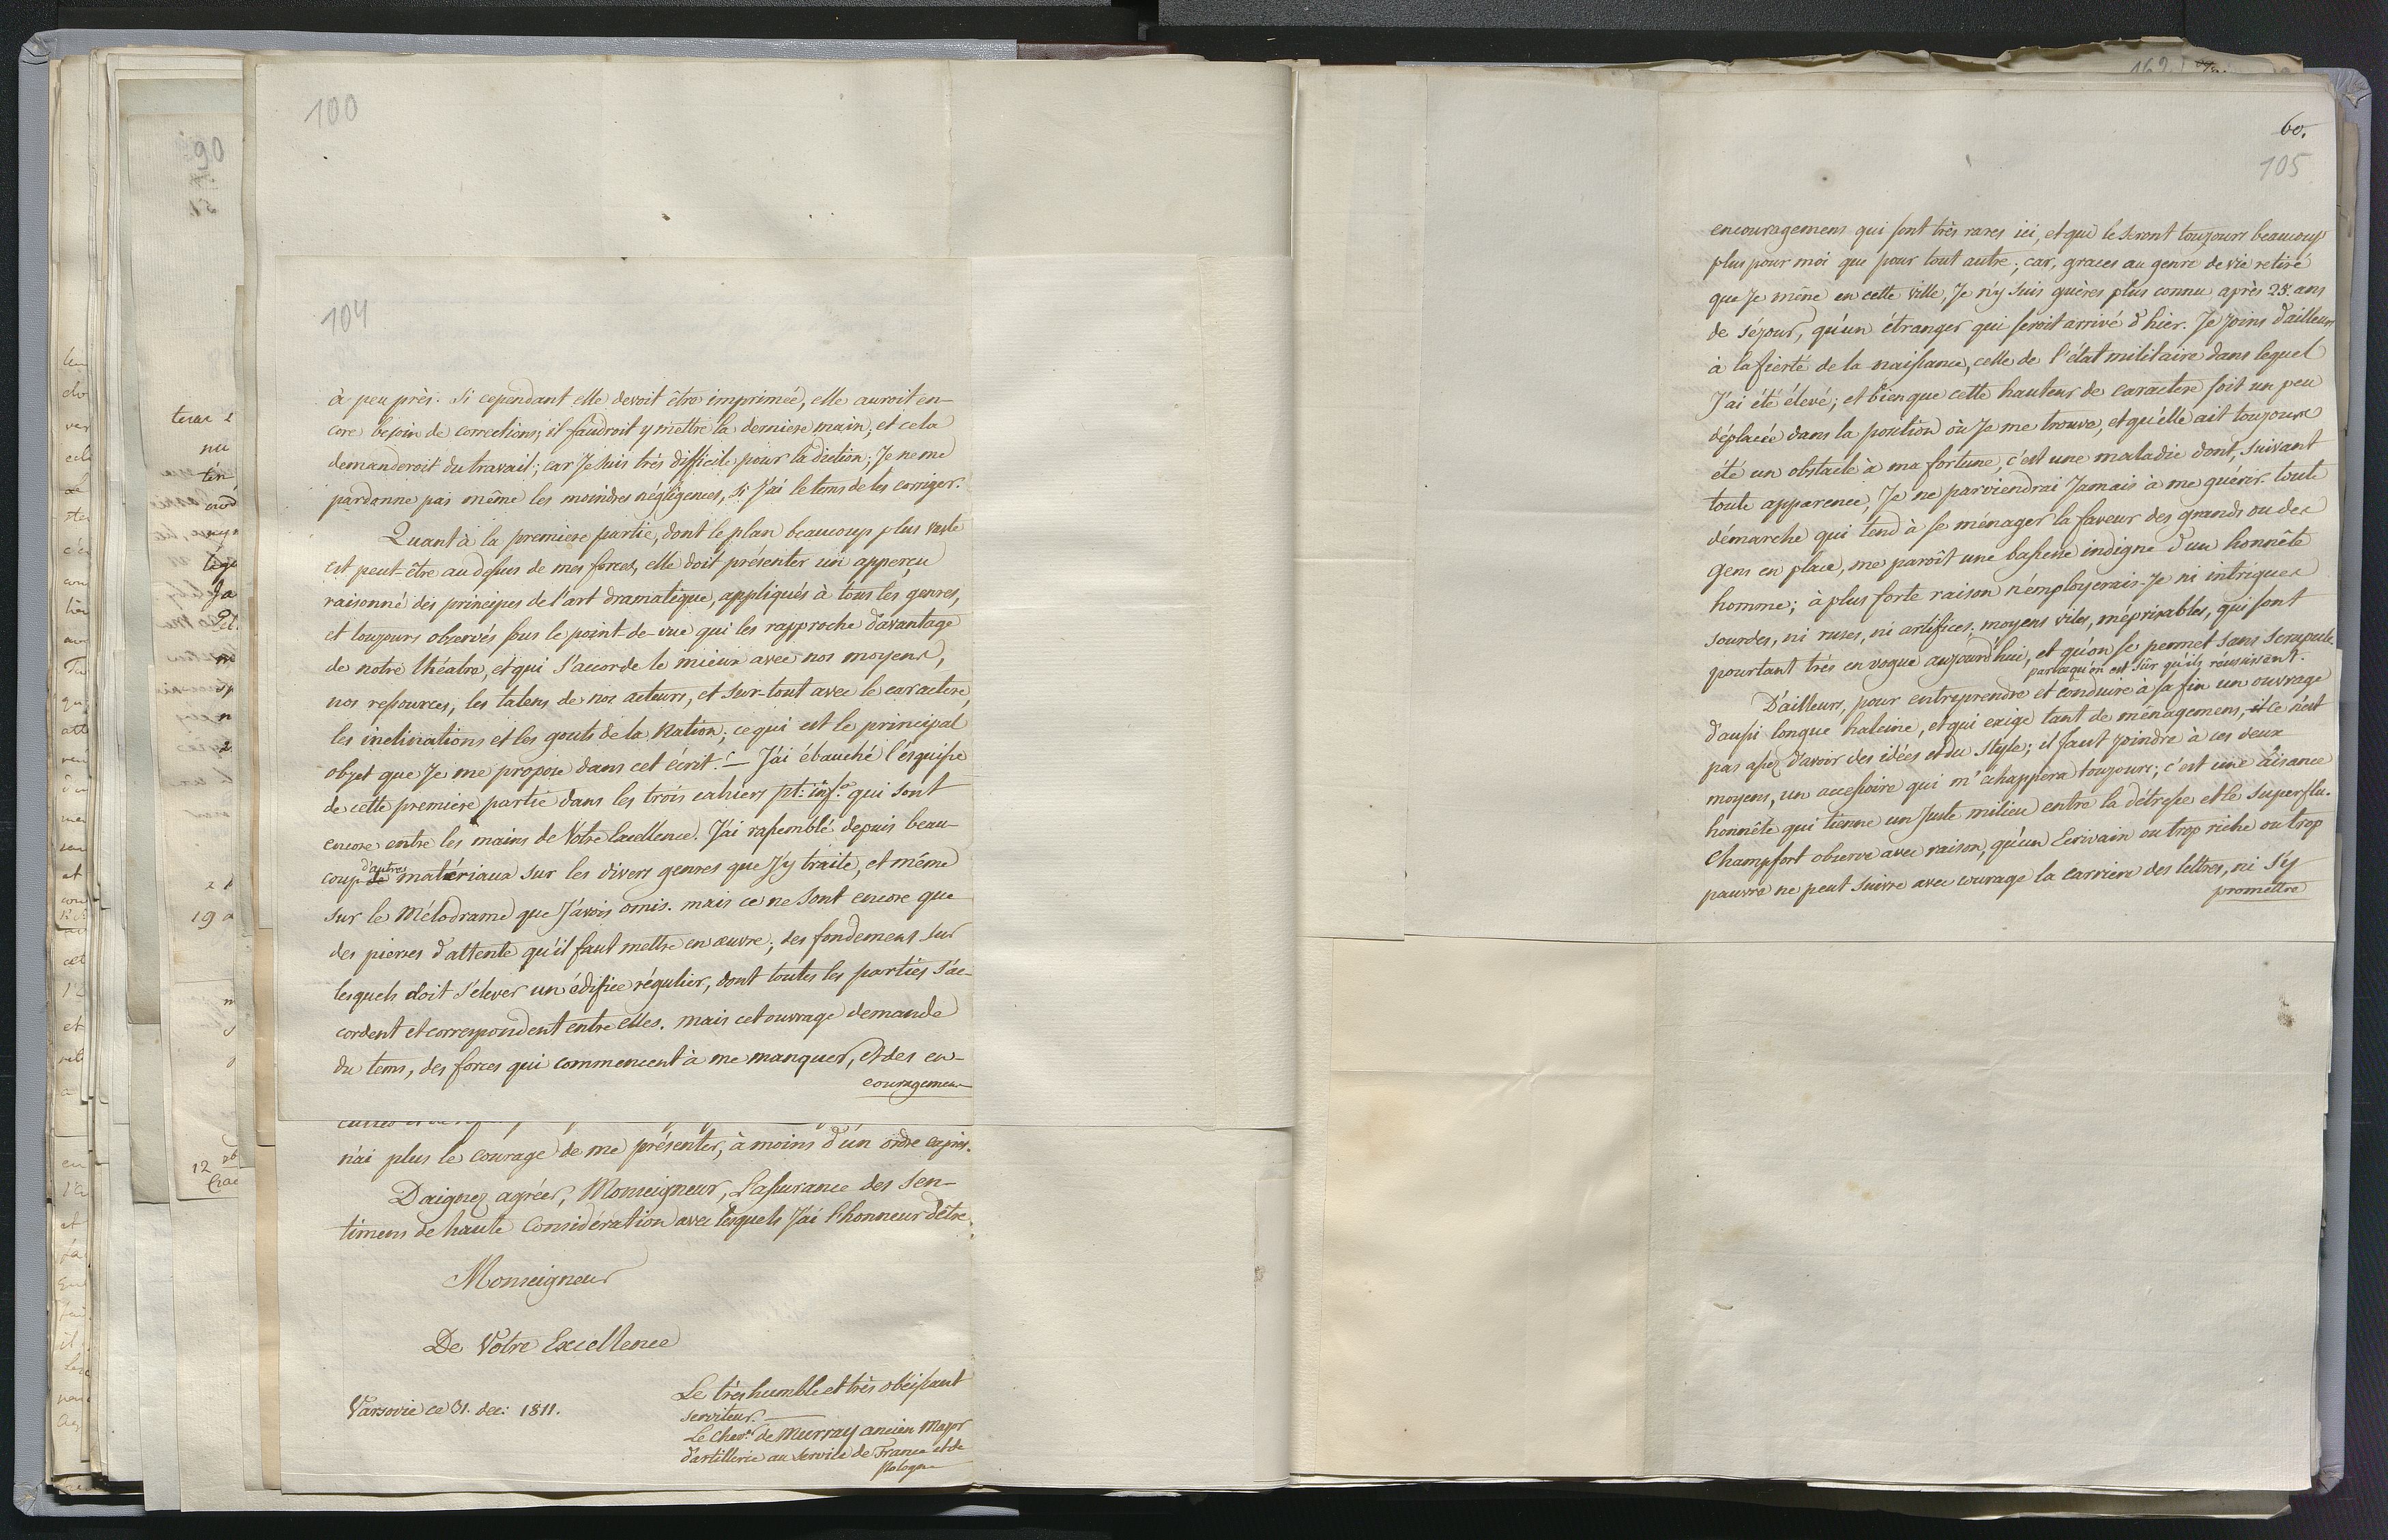 100
104
à peu près. Si cependant elle devoit être imprimée, elle auroit en-
core besoin de corrections; il faudroit y mettre la derniere main; et cela
demanderoit du travail; car Je suis très difficile pour la diction; Je ne me
pardonne pas même les moindres négligences, si J'ai le tems de les corriger.
Quant à la premiere partie, dont le plan beaucoup plus vaste
est peut-être au dessus de mes forces, elle doit présenter un apperçu
raisonné des principes de l'art dramatique, appliqués à tous les genres,
et toujours observés sous le point-de-vue qui les rapproche davantage
de notre théatre, et qui s'accorde le mieux avec nos moyens,
nos ressources, les talens de nos acteurs, et sur-tout avec le caractere,
les inclinations et les gouts de la Nation; ce qui est le principal
objet que Je me propose dans cet écrit. — J'ai ébauché l'esquisse
de cette premiere partie dans les trois cahiers pt. inf.º qui sont
encore entre les mains de Votre Excellence. J'ai rassemblé depuis beau-
coup de d'autres matériaux sur les divers genres que J'y traite, et même
sur le Mélodrame que J'avois omis. mais ce ne sont encore que
des pierres d'attente qu'il faut mettre en œuvre; des fondemens sur
lesquels doit s'élever un édifice régulier, dont toutes les parties s'ac-
cordent et correspondent entre elles. mais cet ouvrage demande
du tems, des forces qui commencent à me manquer, et des en-
couragemens
n'ai plus le courage de me présenter, à moins d'un ordre exprès.
Daignez agréer, Monseigneur, l'assurance des sen-
timens de haute considération avec lesquels J'ai l'honneur d'être,
Monseigneur
De Votre Excellence
Le très humble et très obéissant
serviteur.
Varsovie ce 31. dec: 1811.
Le Chev.er de Murray ancien Major
d'artillerie au service de France et de
Pologne
60.
105
encouragemens qui sont très rares ici, et qui le seront toujours beaucoup
plus pour moi que pour tout autre; car, graces au genre de vie retiré
que Je mêne en cette ville, Je n'y suis guères plus connu après 25. ans
de séjour, qu'un étranger qui seroit arrivé d'hier. Je joins d'ailleurs
à la fierté de la naissance, celle de l'état militaire dans lequel
J'ai été élevé; et bien que cette hauteur de caractere soit un peu
déplacée dans la position où Je me trouve, et qu'elle ait toujours
été un obstacle à ma fortune, c'est une maladie dont, suivant
toute apparence, Je ne parviendrai Jamais à me guérir. toute
démarche qui tend à se ménager la faveur des grands ou des
gens en place, me paroît une bassesse indigne d'un honnête
homme; à plus forte raison n'employerais-Je ni intrigues
sourdes, ni ruses, ni artifices, moyens viles, méprisables, qui sont
pourtant très en vogue aujourd'hui, et qu'on se permet sans scrupule
parcequ'on est sûr qu'ils réussissent.
D'ailleurs, pour entreprendre et conduire à sa fin un ouvrage
d'aussi longue haleine, et qui exige tant de ménagemens, il ce n'est
pas assez d'avoir des idées et du Style; il faut joindre à ces deux
moyens, un accessoire qui m'echappera toujours; c'est une aisance
honnête qui tienne un Juste milieu entre la détresse et le superflu.
Champfort observe avec raison, qu'un Ecrivain ou trop riche ou trop
pauvre ne peut suivre avec courage la carriere des lettres, ni s'y
promettre